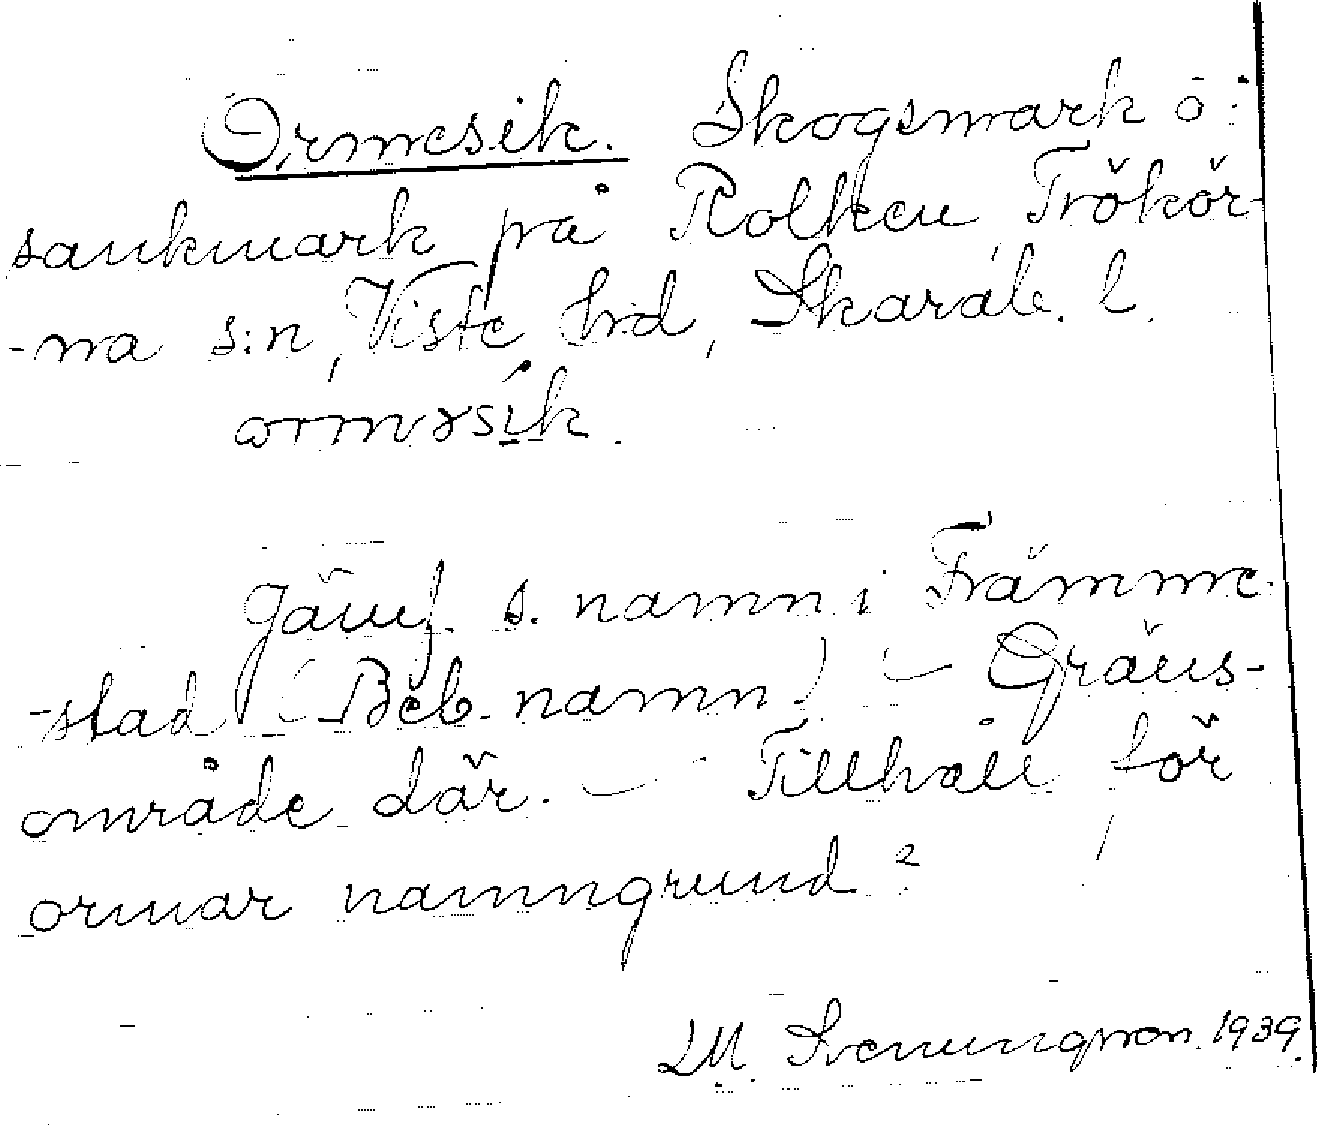 Ormesik. Skogsmark o:
sankmark på Rolken, Trökör-
-na s:n, Viste hd, Skarab. l.
ormәsik.
Jämf. s. namn i Främme-
-stad (Beb. namn) – Gräns-
område där. – Tillhåll för
ormar namngrund?
M. Svenungsson 1939.